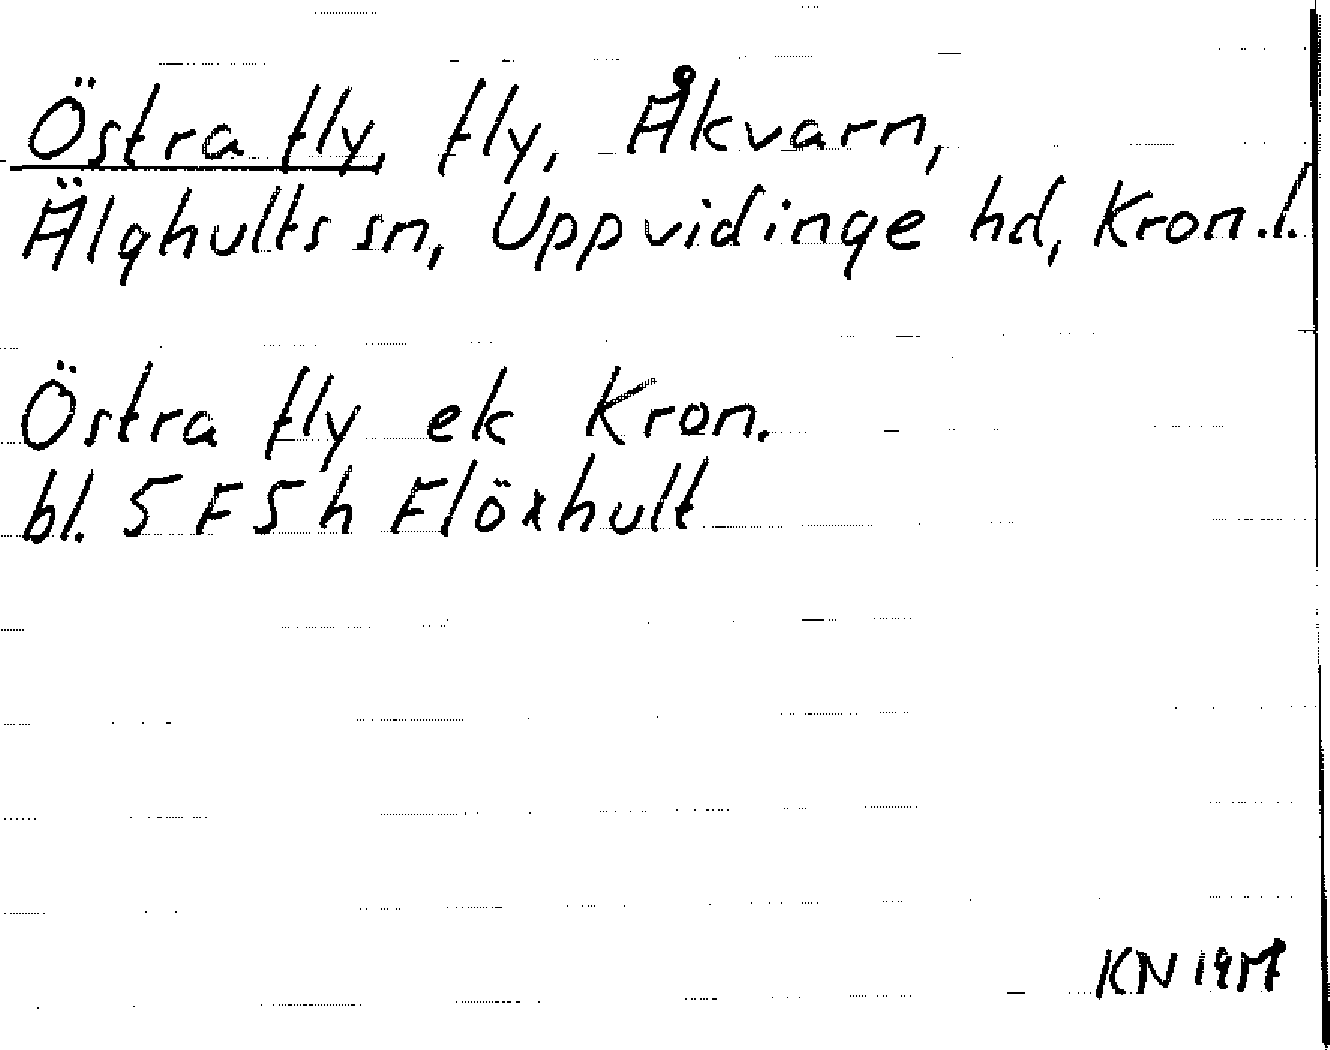 Östra fly, fly, Åkvarn,
Älghults sn, Uppvidinge hd, Kron.l.
Östra fly ek Kron.
bl. 5 F 5 h Flöxhult
KN